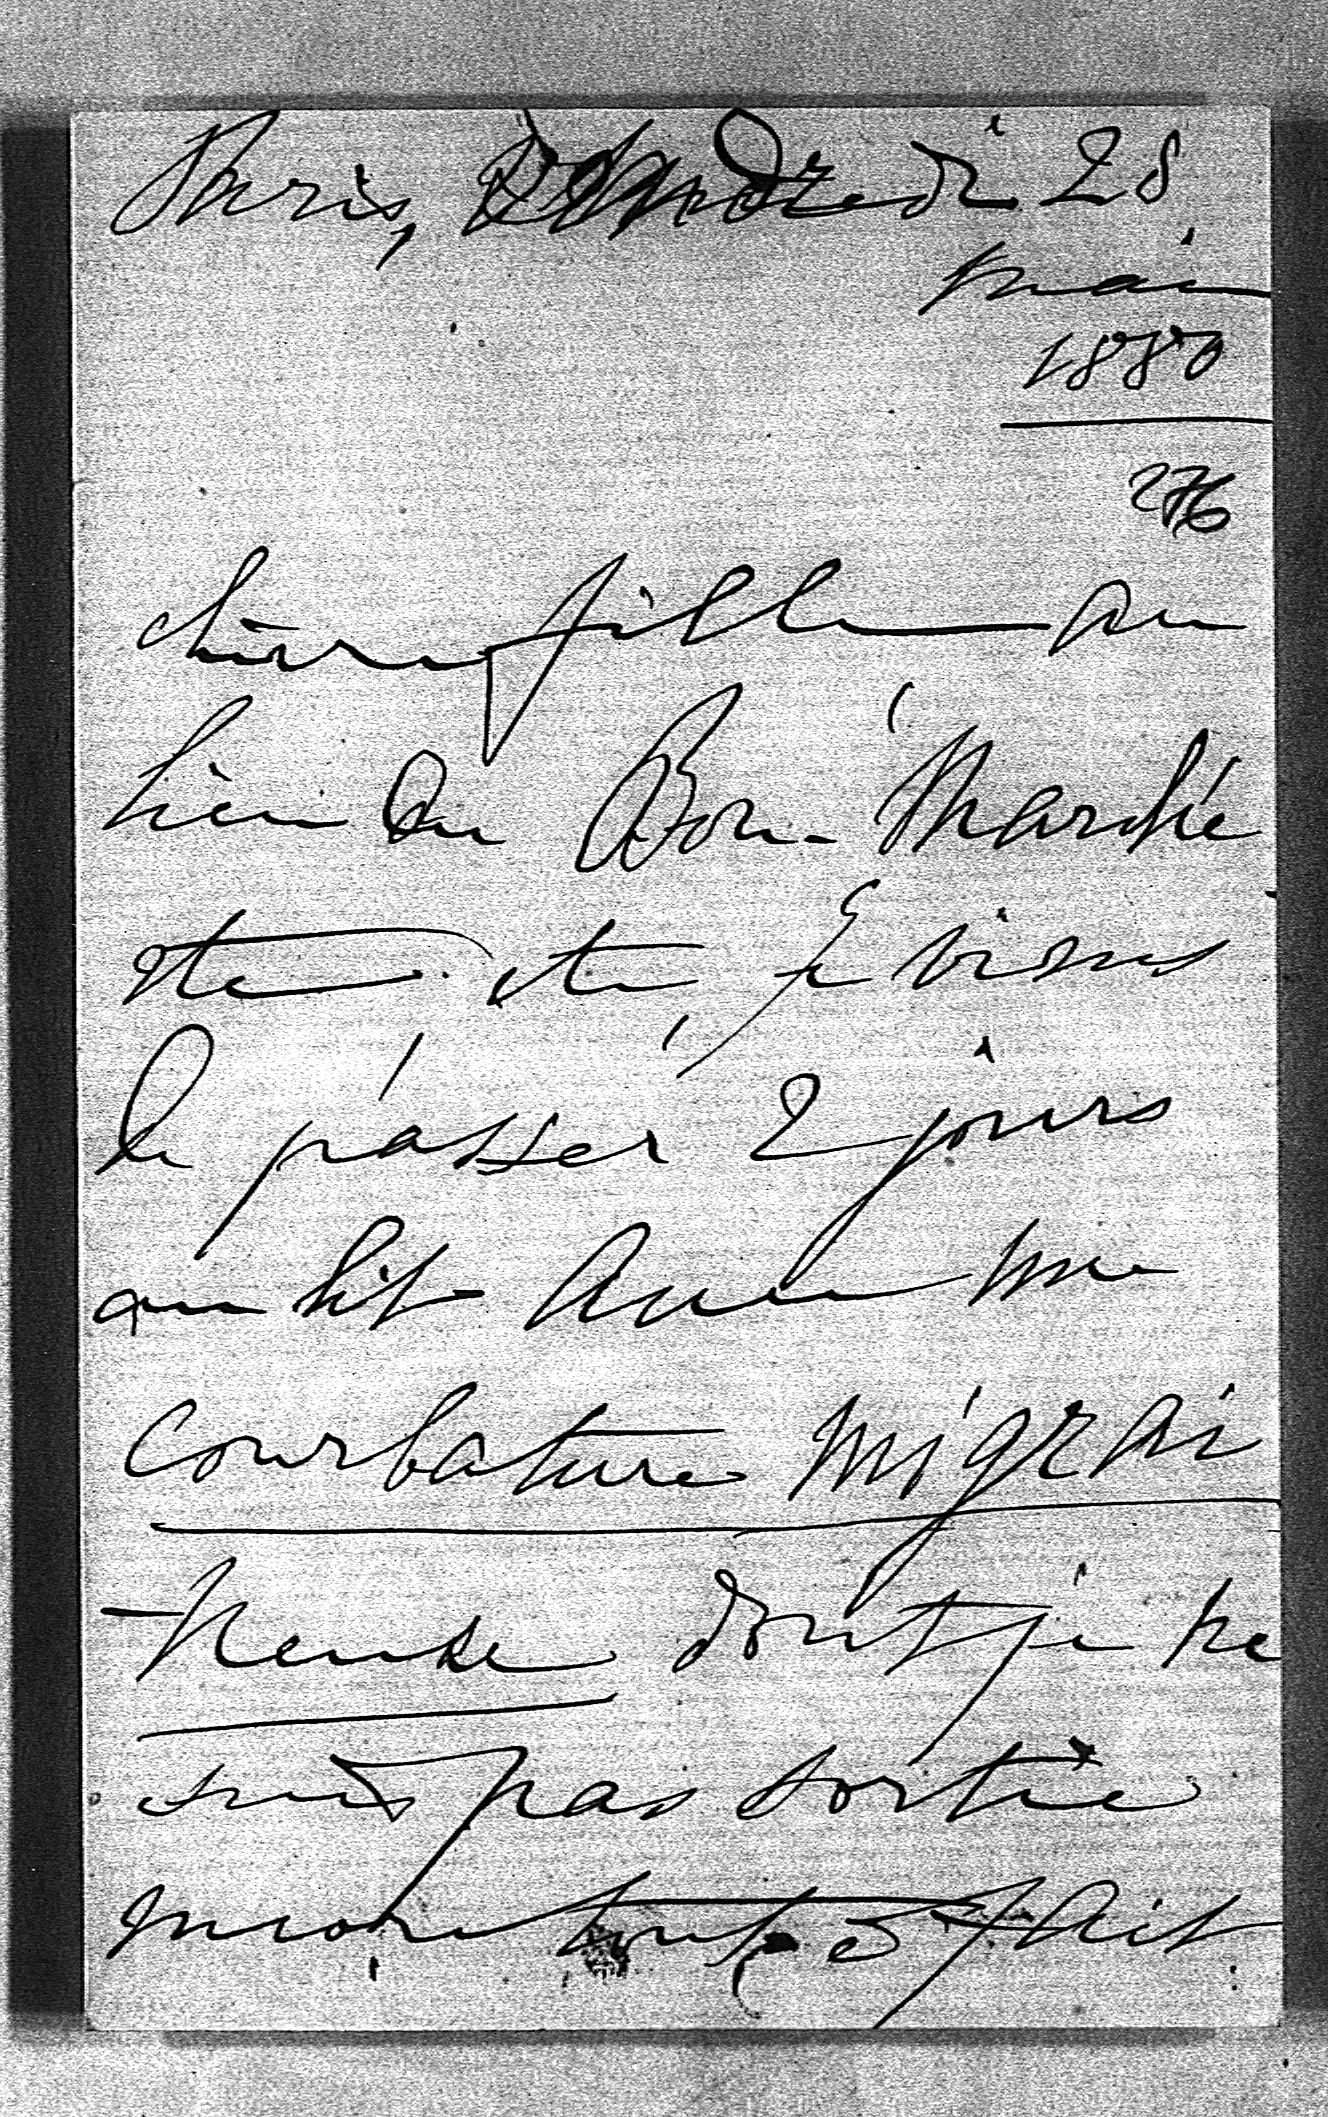 Paris, Vendredi 28
mai
1880
276
chère fille au
lieu du Bon-Marché
etc etc je viens
de passer 2 jours
au lit avec une
courbature migrai
-neuse dont je ne
suis pas sortie
encore tout à fait